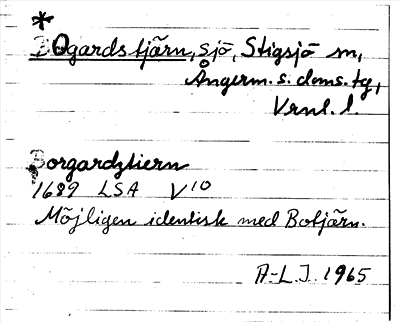 *
Bogardstjärn, sjö, Stigsjö sn,
Ångerm. s. doms. tg,
Vrnl. l.
Borgardztiern
1689 LSA V10
Möjligen identisk med Botjärn.
A-L.J. 1965